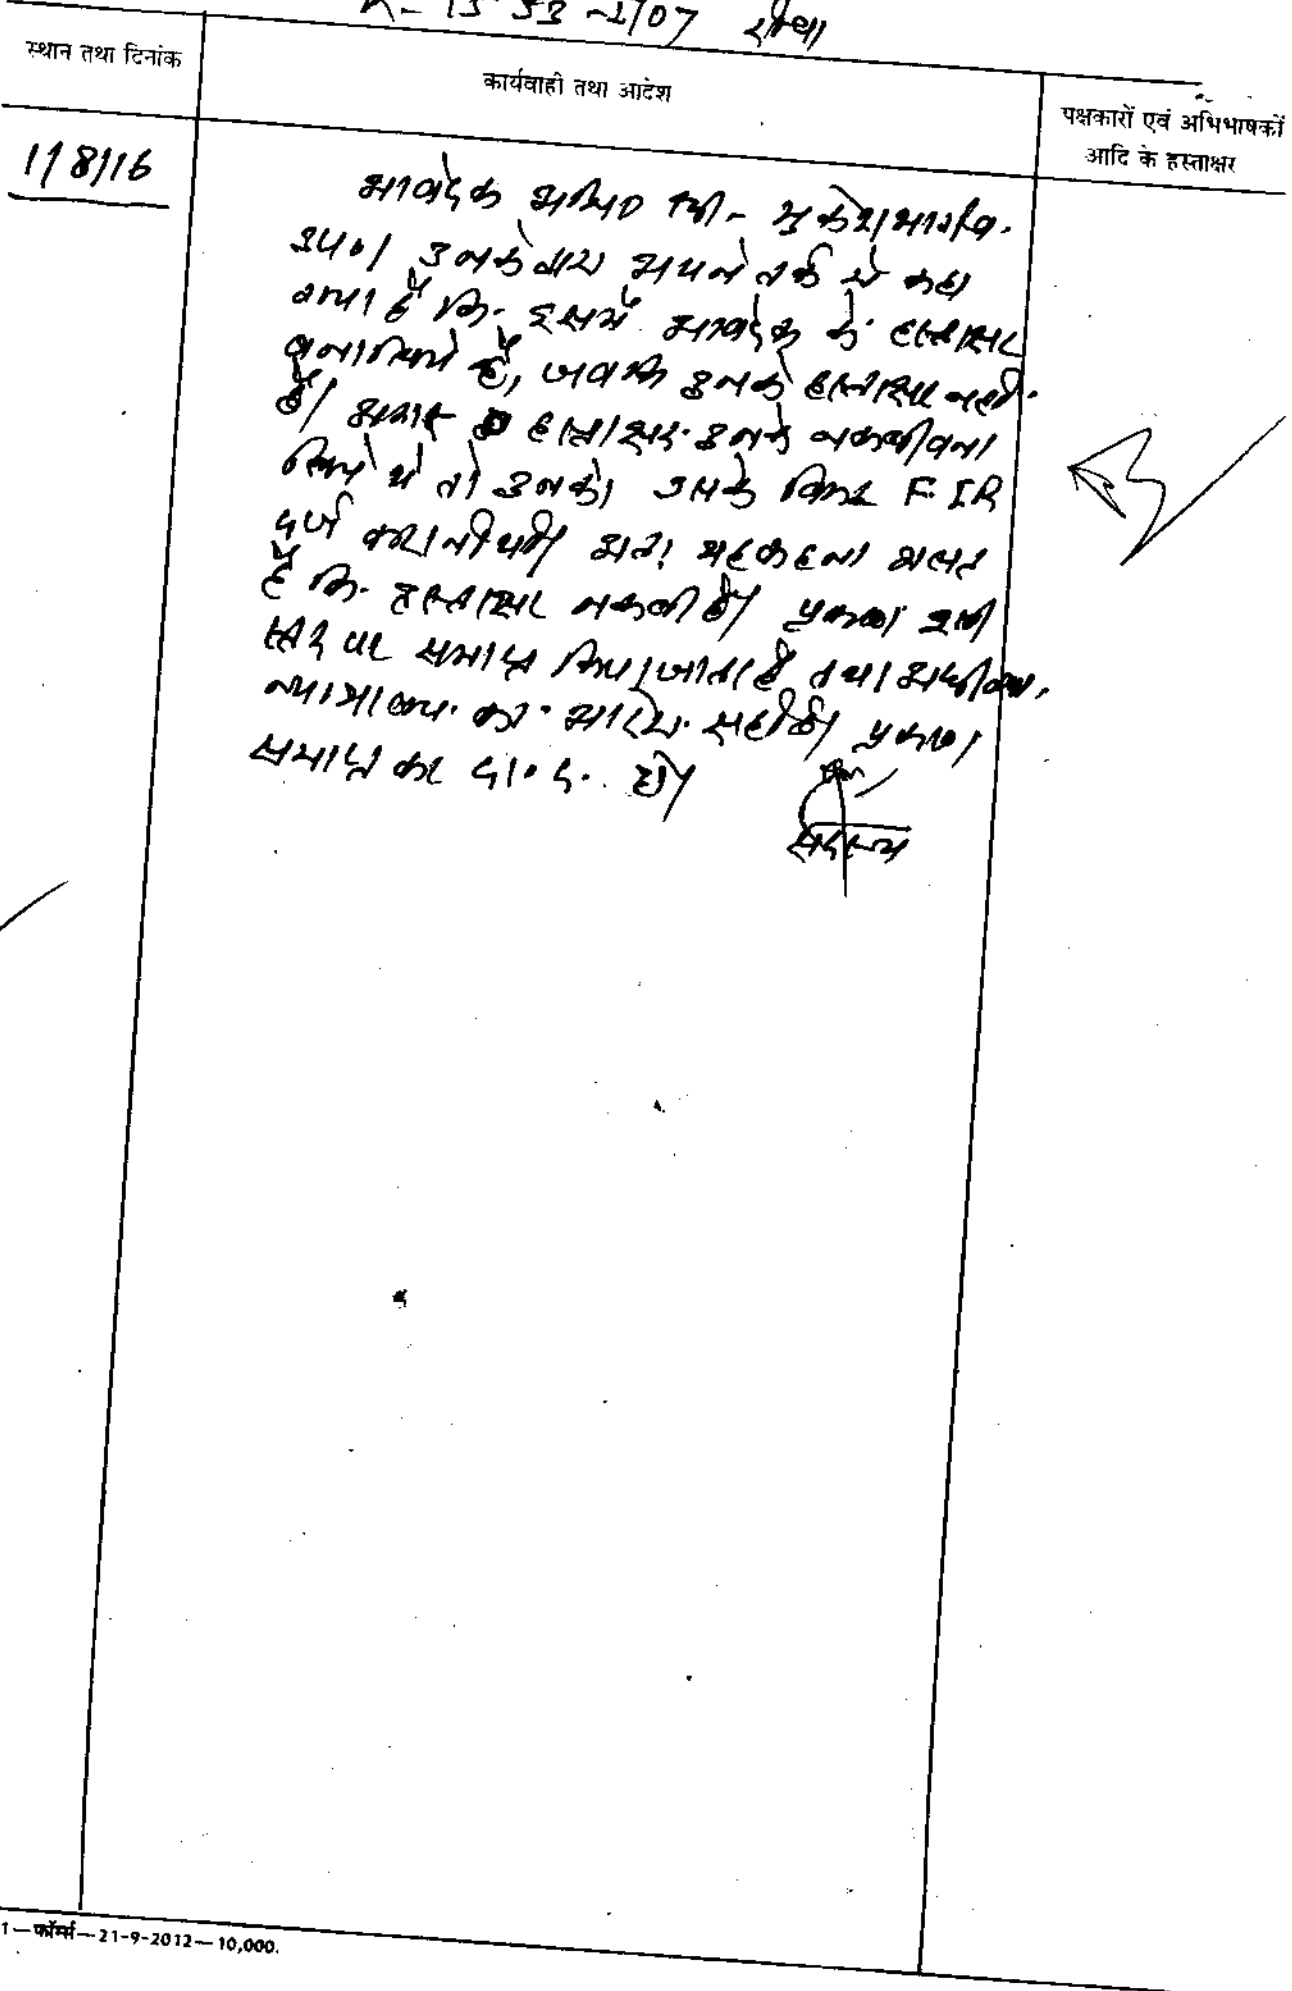 रीवा
स्थान तथा दिनांक
कार्यवाही तथा आदेश
पक्षकारों एवं अभिभाषकों
आदि के हस्ताक्षर
1/8/16
आवेदक अभि० श्री- मुकेश भार्गव
उप०। उनके द्वारा अपने तर्क में कहा
गया है कि इसमें आवेदक के हस्ताक्षर
बना लिये हैं, जबकि उनके हस्ताक्षर नहीं
हैं। अगर हस्ताक्षर उनके नकली बना
लिये थे तो उनको उसके विरूद्ध F.I.R
दर्ज करानी थी। अतः यह कहना गलत
है कि हस्ताक्षर नकली हैं। प्रकरण इसी
स्तर पर समाप्त किया जाता है तथा अधीनस्थ
न्यायालय का आदेश सही है। प्रकरण
समाप्त कर दा. द. हो।
सदस्य
1—फॉर्म्स—21-9-2012—10,000.